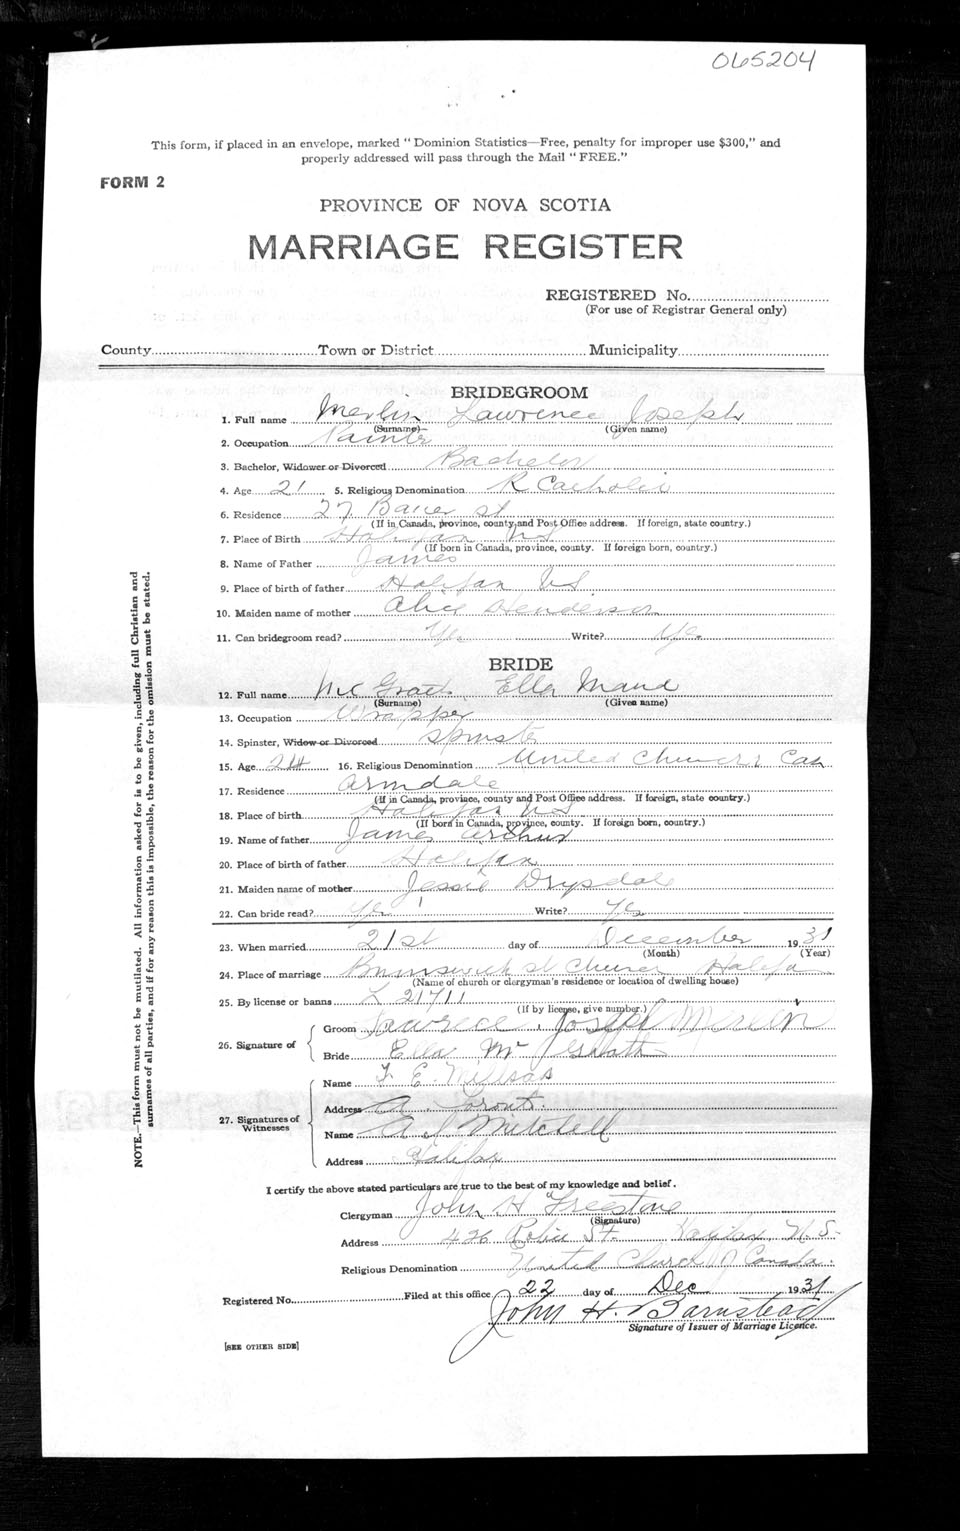 065204
This form, if placed in an envelope, marked "Dominion Statistics—Free, penalty for improper use $300," and
properly addressed will pass through the Mail "FREE."
FORM 2
PROVINCE OF NOVA SCOTIA
MARRIAGE REGISTER
REGISTERED No.
(For use of Registrar General only)
County Town or District Municipality
BRIDEGROOM
1. Full name Merlin Lawrence Joseph
(Surname) (Given name)
2. Occupation Painter
3. Bachelor, Widower or Divorced Bachelor
4. Age 21 5. Religious Denomination R Catholic
6. Residence 27 Bauer st
(If in Canada, province, county and Post Office address. If foreign, state country.)
7. Place of Birth Halifax NS
(If born in Canada, province, county. If foreign born, country.)
8. Name of Father James
9. Place of birth of father Halifax NS
10. Maiden name of mother Alice Henderson
11. Can bridegroom read? Yes Write? Yes
BRIDE
12. Full name McGrath Ella Maud
(Surname) (Given name)
13. Occupation Wrapper
14. Spinster, Widow or Divorced Spinster
15. Age 24 16. Religious Denomination United Church Can
17. Residence Armdale
(If in Canada, province, county and Post Office address. If foreign, state country.)
18. Place of birth Halifax NS
(If born in Canada, province, county. If foreign born, country.)
19. Name of father James Arthur
20. Place of birth of father Halifax
21. Maiden name of mother Jessie Drysdale
22. Can bride read? Yes Write? Yes
23. When married 21st day of December 1931
(Month) (Year)
24. Place of marriage Brunswick st Church Halifax
(Name of church or clergyman's residence or location of dwelling house)
25. By license or banns L 21711
(If by license, give number.)
26. Signature of Groom Lawrence Joseph Merlin
Bride Ella McGrath
27. Signatures of Witnesses Name F. E.
Address
Name A J Mitchell
Address Halifax
I certify the above stated particulars are true to the best of my knowledge and belief.
Clergyman John H Freestone
(Signature)
Address 426 Robie St. Halifax N.S.
Religious Denomination United Church of Canada.
Registered No. Filed at this office 22 day of Dec 1931
John H. Barnstead
Signature of Issuer of Marriage Licence.
[SEE OTHER SIDE]
NOTE.—This form must not be mutilated. All information asked for is to be given, including full Christian and
surnames of all parties, and if for any reason this is impossible, the reason for the omission must be stated.